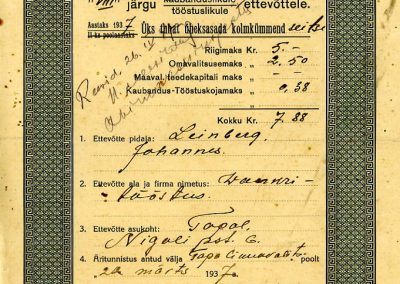 "VIII" järgu kaubanduslikule ettevõttele.
tööstuslikule
Aastaks 1937
II-ks poolaastaks
Üks tuhat üheksasada kolmkümmend seitse
Riigimaks Kr. 5.–
Omavalitsusemaks „ 2.50
Maaval. teedekapitali maks „
Kaubandus-Tööstuskojamaks „ 0.38
Kokku Kr. 7.88
Revid. 26. IV
1. Ettevõtte pidaja: Leinberg,
Johannes.
2. Ettevõtte ala ja firma nimetus:
tööstus.
3. Ettevõtte asukoht: Tapal,
Nigoli pst. 6.
4. Äritunnistus antud välja Tapa Linnavalits. poolt
22 märts 1937 a.